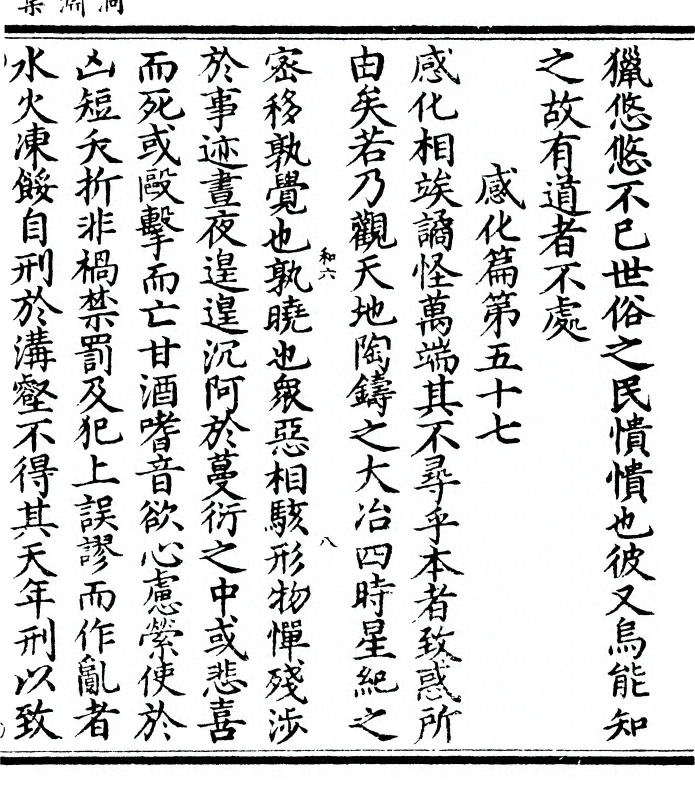 獵悠悠不已世俗之民憒憒也彼又烏能知
之故有道者不處
感化篇第五十七
感化相竢譎怪萬端其不尋乎本者致惑所
由矣若乃觀天地陶鑄之大冶四時星紀之
密移孰覺也孰曉也衆惡相駭形物憚殘涉
於事迹晝夜遑遑沉阿於蔓衍之中或悲喜
而死或毆擊而亡甘酒嗜音欲心慮縈使於
凶短夭折非禍禁罰及犯上誤謬而作亂者
水火凍餒自刑於溝壑不得其天年刑以致
和六
八